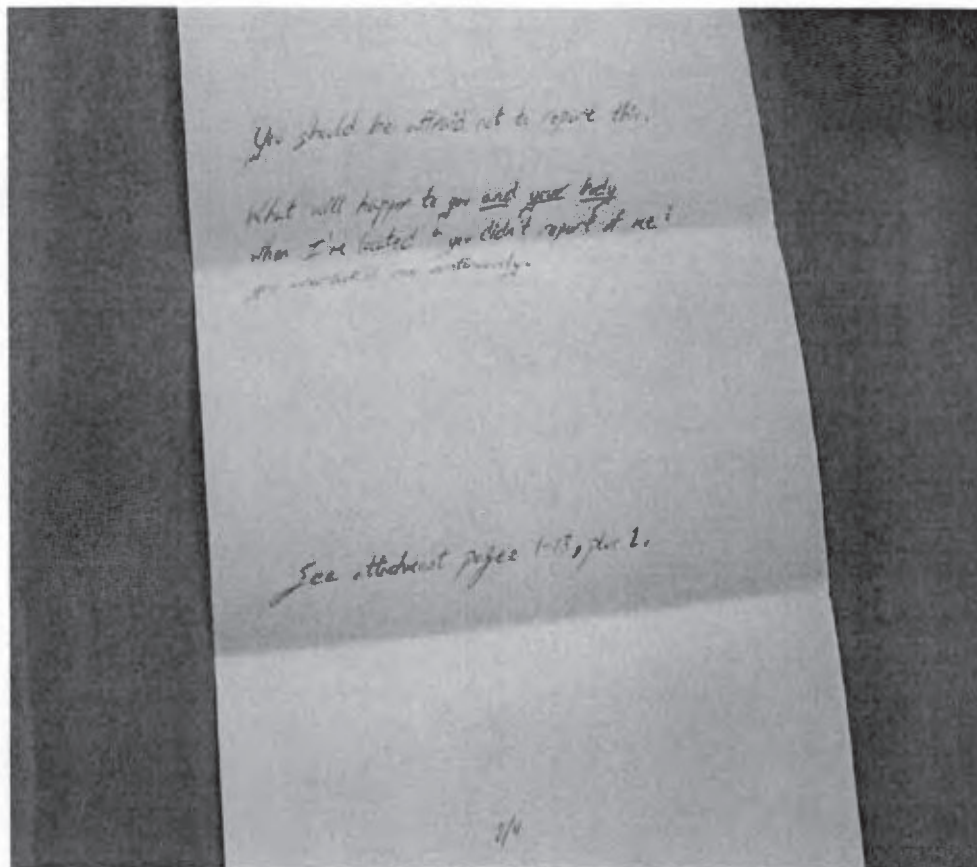 You should be afraid not to report this.
What will happen to you and your body
when I'm located & you didn't report it me!
you
See attachment pages 1-13, plus 2.